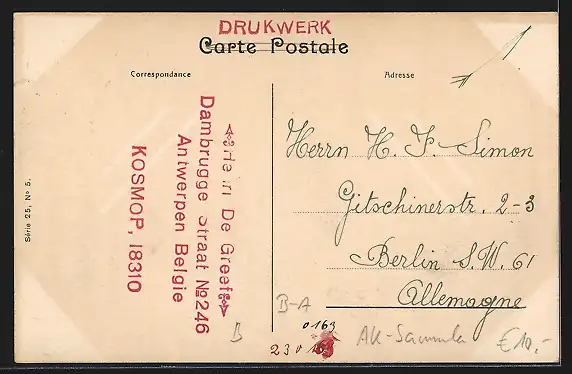 DRUKWERK
Carte Postale
Correspondance
Adresse
Série 25, No 5.
De Greef
Dambrugge Straat No 246
Antwerpen Belgie
KOSMOP, 18310
Herrn H. F. Simon
Gitschinerstr. 2-3
Berlin S.W. 61
Allemagne
B-A
B
0163
230
AK-Sammler
€10,-